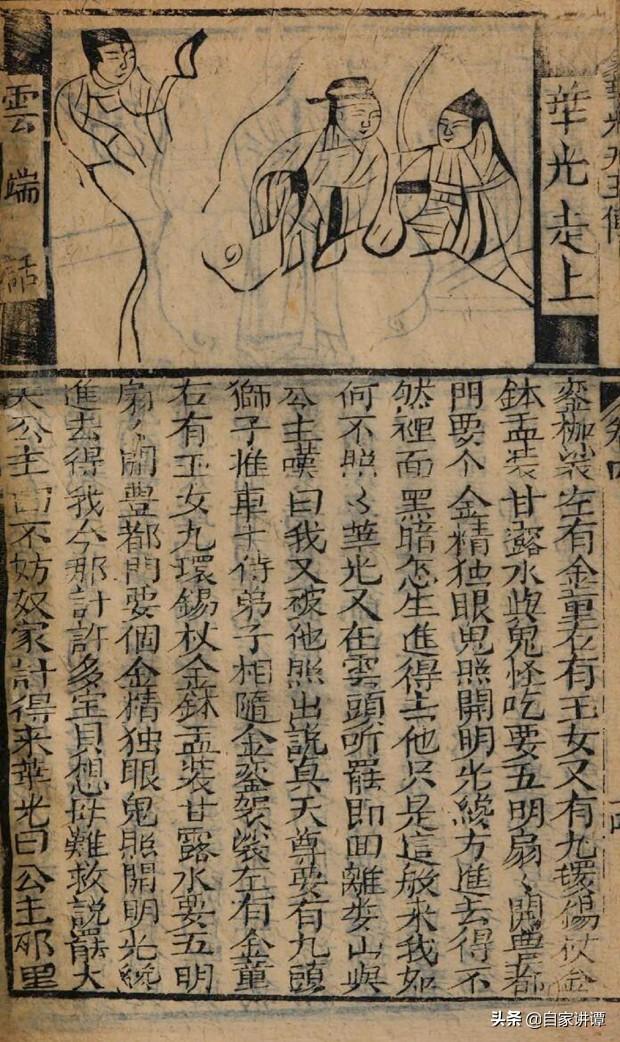 華光走上
雲端話
銮枷裟左有金童右有玉女又有九環錫杖金
鉢盂装甘露水收鬼怪吃要五明扇〻開豊都
門要个金精独眼鬼照開明光纔方進去得不
然裡面黑暗怎生進得去他只是這般来我如
何不照〻華光又在雲頭听罷即回離娄山與
公主嘆曰我又被他照出說真天尊要有九頭
獅子推車十侍弟子相隨金銮袈裟左有金童
右有玉女九環錫杖金鉢盂装甘露水要五明
扇〻開豊都門要個金精独眼鬼照開明光纔
進去得我今那計許多宝貝想母難救說罷大
哭公主曰不妨奴家計得来華光曰公主那里
卷四
头条 @自家讲谭